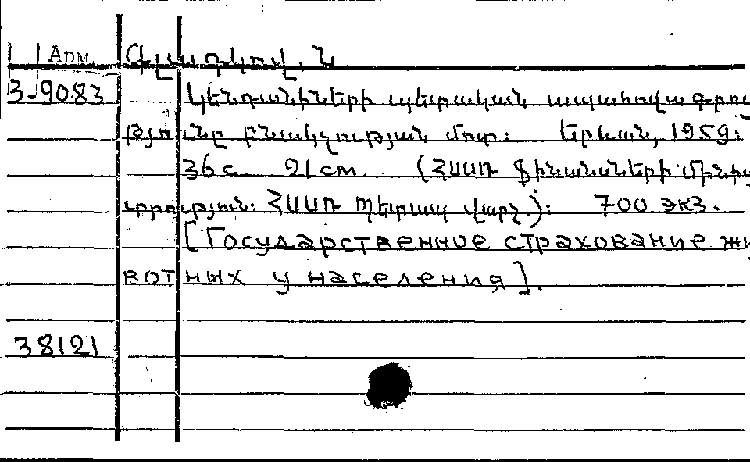 Арм. Գլադկով. Ն
3-9083 Կենդանիների պետական ապահովագրու
թյունը բնակչության մոտ: Երևան, 1959:
36 с. 21 см. (ՀՍՍՌ ֆինանսների մինիս
տրություն: ՀՍՍՌ Պետապ վարչ.): 700 экз.
[Государственное страхование жи
вотных у населения].
38121